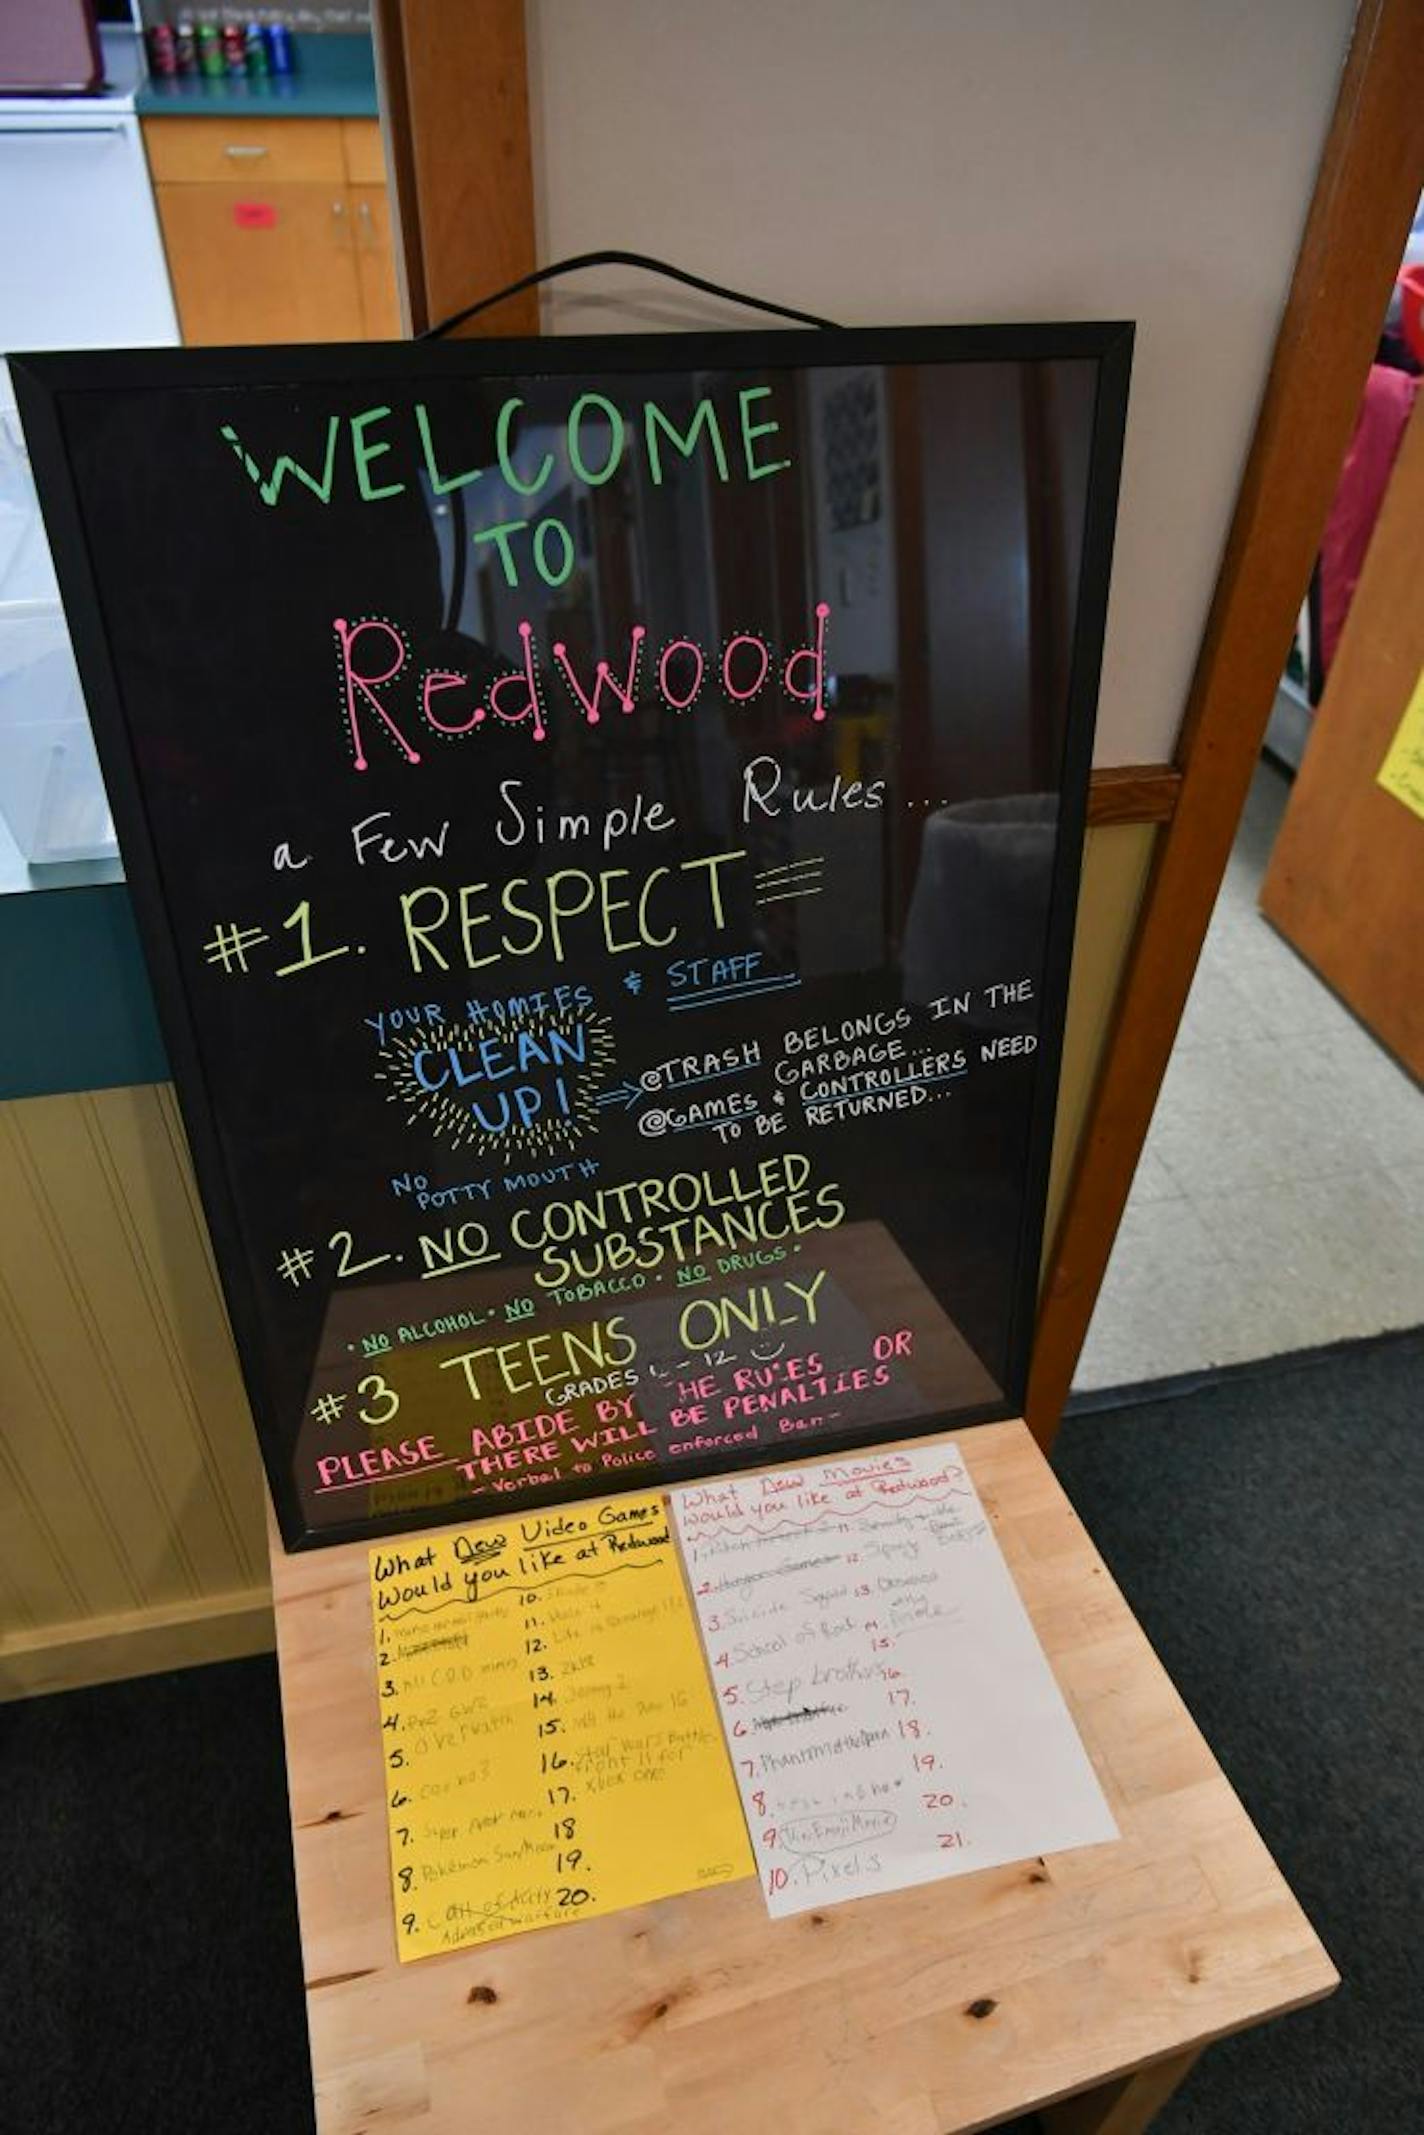 WELCOME
TO
Redwood
a Few Simple Rules...
#1. RESPECT
YOUR HOMIES & STAFF
CLEAN
UP!
@TRASH BELONGS IN THE
GARBAGE...
@GAMES & CONTROLLERS NEED
TO BE RETURNED...
NO
POTTY MOUTH
#2. NO CONTROLLED
SUBSTANCES
• NO ALCOHOL • NO TOBACCO • NO DRUGS •
#3 TEENS ONLY
GRADES - 12
PLEASE ABIDE BY THE RULES OR
THERE WILL BE PENALTIES
- Verbal to Police enforced Ban -
What New Video Games
Would you like at Redwood
1.
2.
3. All C.O.D
4. PvZ GW2
5. Overwatch
6.
7.
8. Pokémon Sun/Moon
9. Call of duty
Advanced warfare
10.
11.
12. Life is Strange
13. 2K18
14.
15.
16. Star Wars Battle
front II for
Xbox one
17.
18
19.
20.
What New Movies
Would you like at Redwood?
1.
2. Hunger Games
3. Suicide Squad
4. School of Rock
5. Step brothers
6.
7. Phantom of the Opera
8.
9. The Emoji Movie
10. Pixels
11.
12.
13.
14.
15.
16.
17.
18.
19.
20.
21.